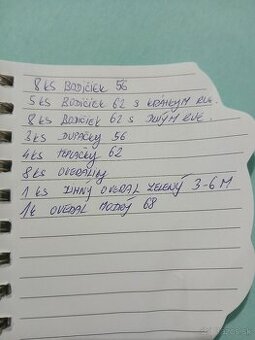 8 ks BODIČIEK 56
5 ks BODIČIEK 62 S KRÁTKYM RUK.
8 ks BODIČIEK 62 S DLHÝM RUK.
3 ks DUPAČKY 56
4 ks TEPLÁČKY 62
8 ks OVERALINY
1 ks ZIMNÝ OVERAL ZELENÝ 3-6 M
1k OVERAL MODRÝ 68